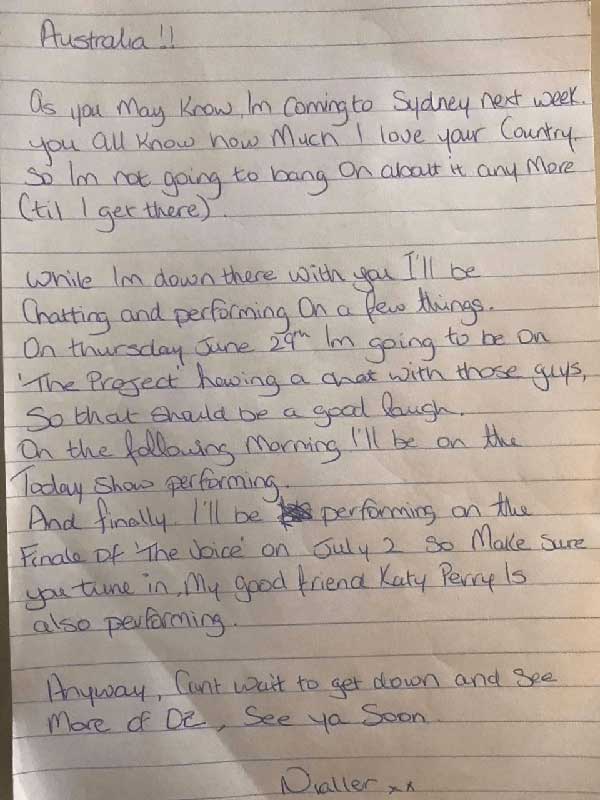 Australia!!
As you may know, Im coming to Sydney next week.
you all know how much I love your country,
So Im not going to bang on about it any more
(til I get there).
While Im down there with you I'll be
Chatting and performing on a few things.
On thursday June 29th Im going to be on
'The Project' having a chat with those guys,
So that should be a good laugh.
On the following morning I'll be on the
Today show performing.
And finally I'll be performing on the
Finale of 'The Voice' on July 2 so make sure
you tune in, My good friend Katy Perry Is
also performing.
Anyway, Cant wait to get down and see
More of OZ, See ya Soon
Nialler xx